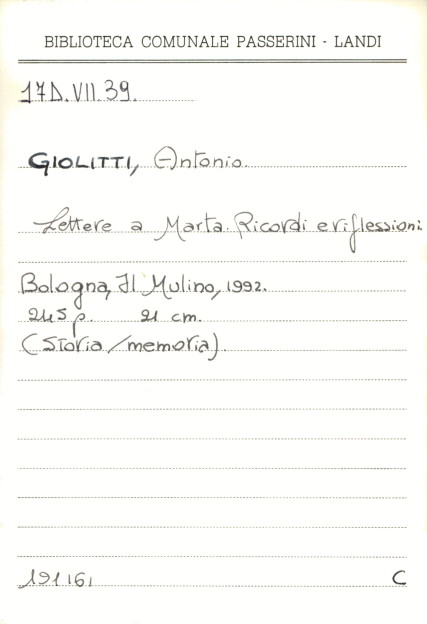 BIBLIOTECA COMUNALE PASSERINI - LANDI
17D.VII.39.
GIOLITTI, Antonio.
Lettere a Marta. Ricordi e riflessioni.
Bologna, Il Mulino, 1992.
245 p. 21 cm.
(Storia/memoria).
191161
C